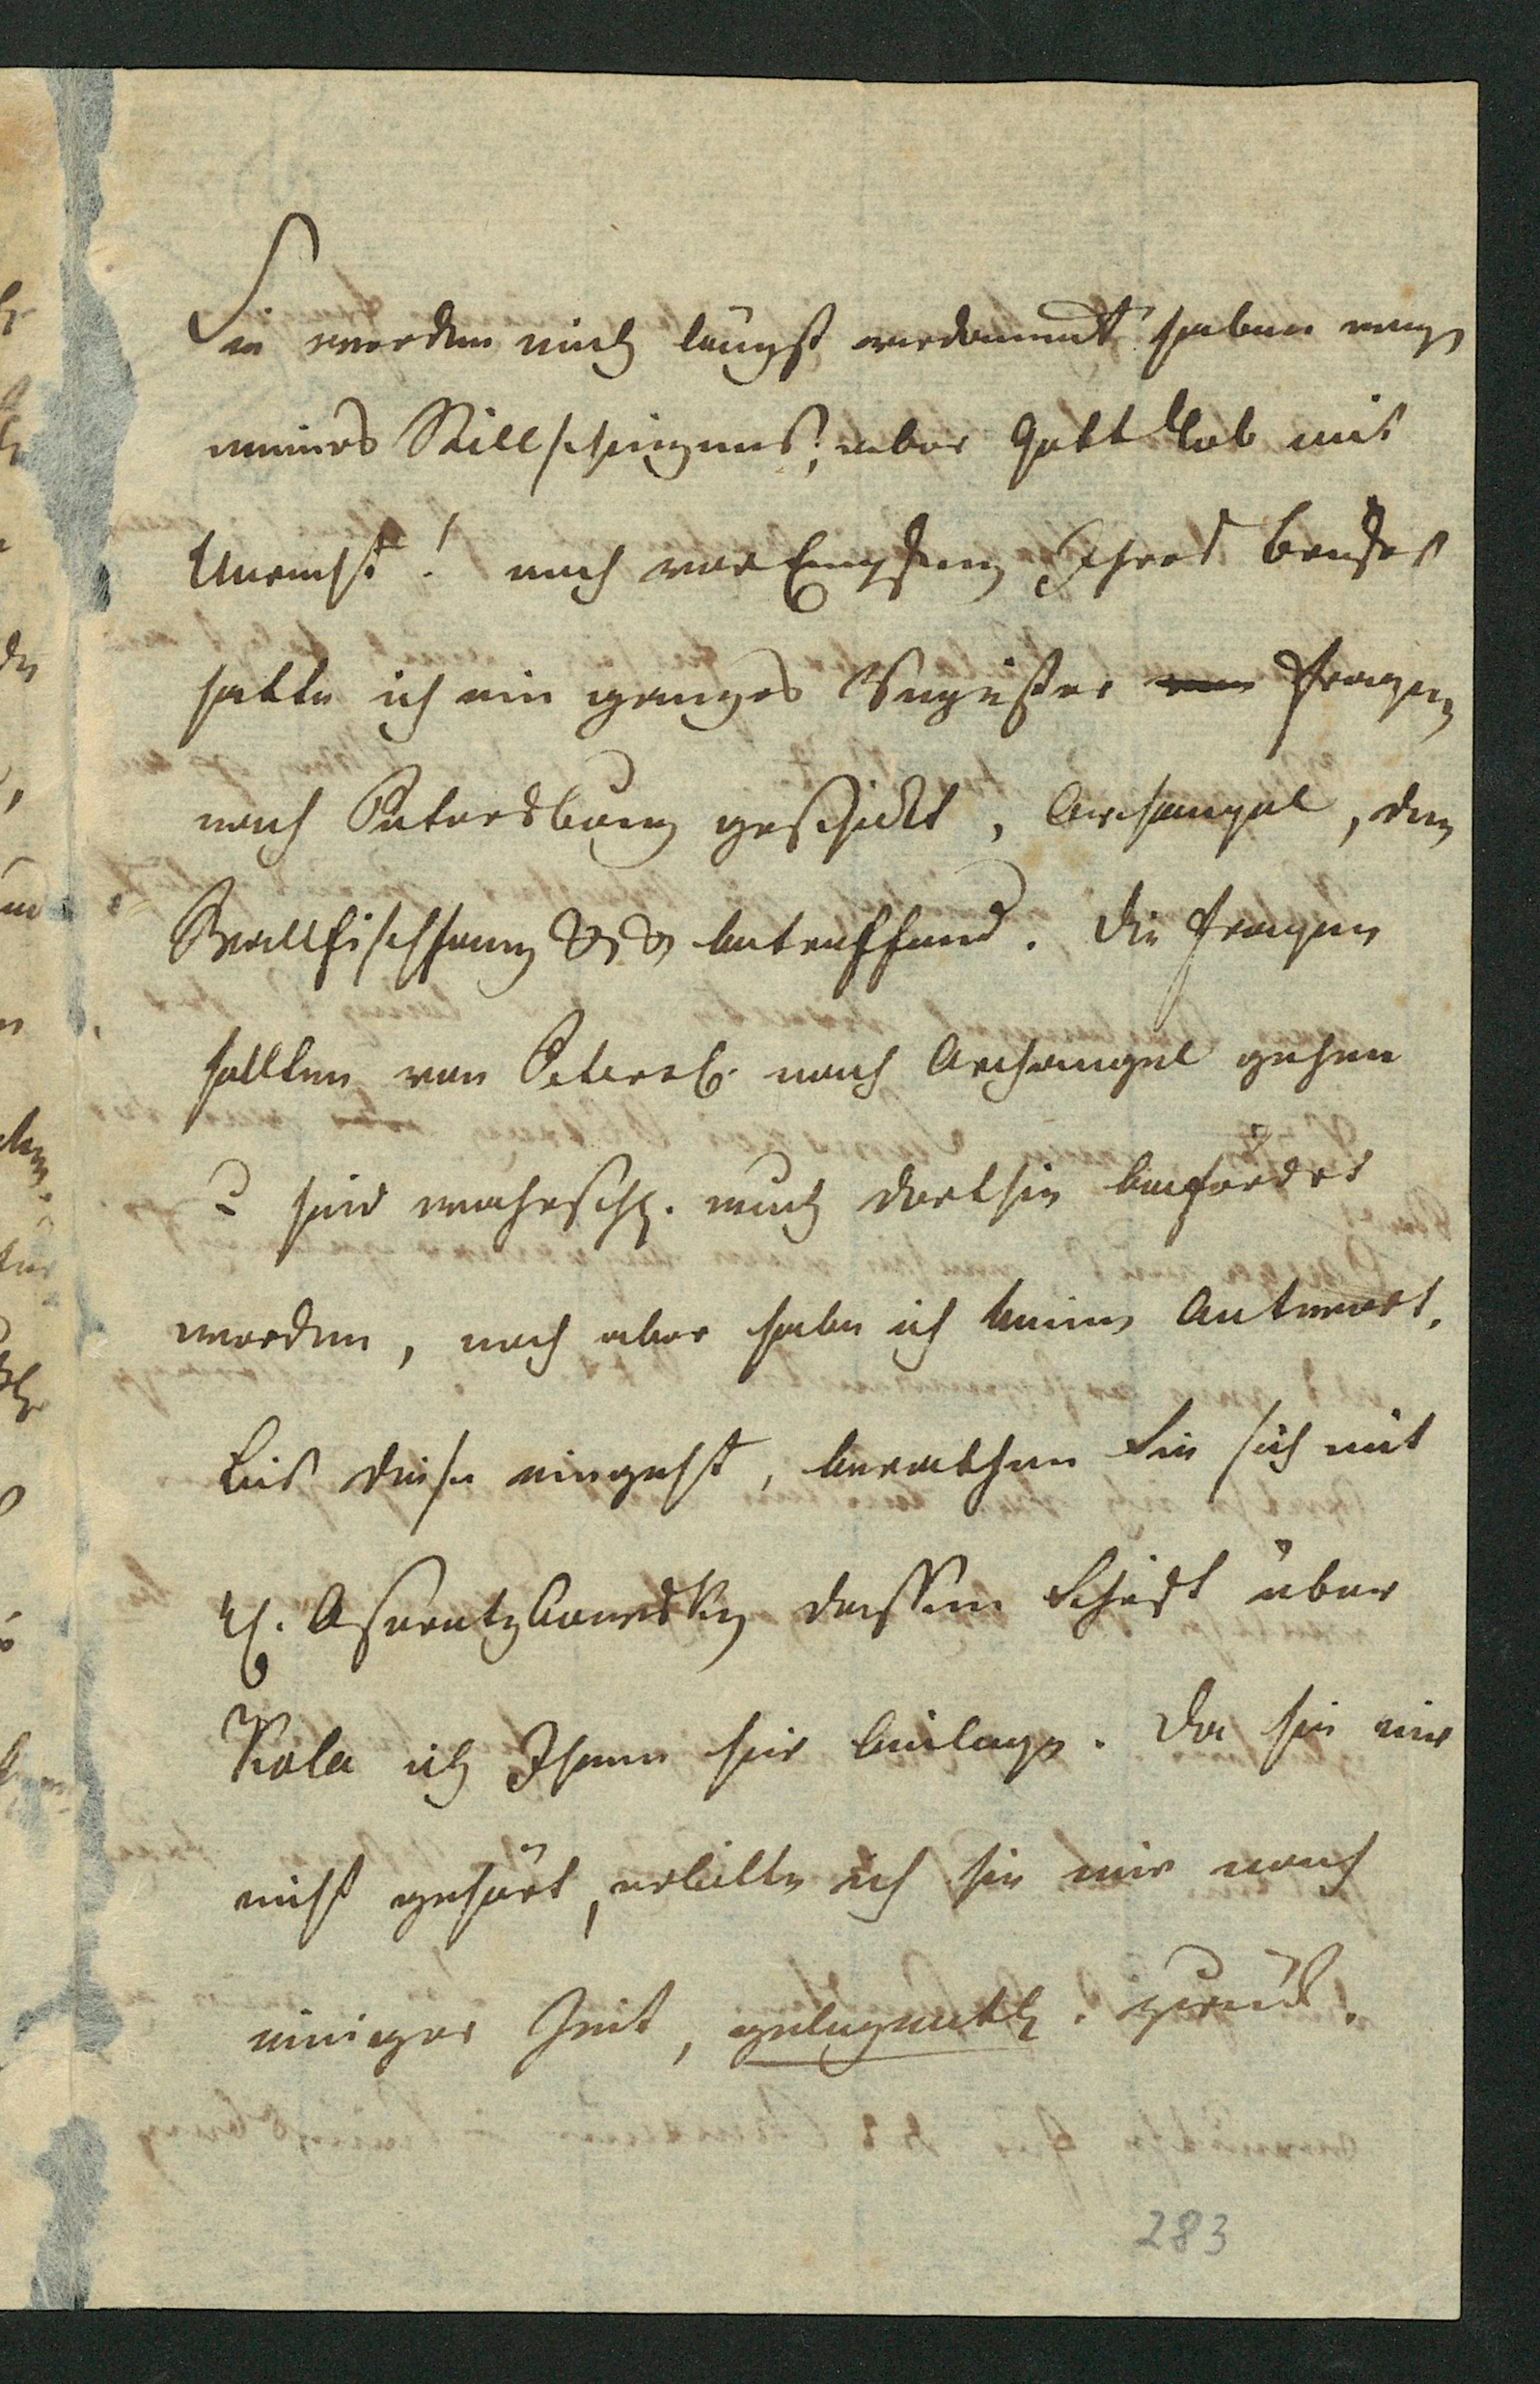 Sie werden mich längst verdammt haben wegen
meines Stillschweigens; aber Gott Lob mit
Unrecht! noch vor Empfang Ihres Briefes
hatte ich ein ganzes Register Fragen
nach Petersburg geschickt, Archangel, den
Wallfischfang betreffend. Die Fragen
sollten von Petersb. nach Archangel gehen
u sind wahrsch. auch dorthin befördert
worden, noch aber habe ich keine Antwort.
Bis diese eingeht, berathen Sie sich mit
H. dessen Schrift über
Kola ich Ihnen hier beilege. Da sie mir
nicht gehört, erbitte ich sie mir nach
einiger Zeit, gelegentl. zurück.
283